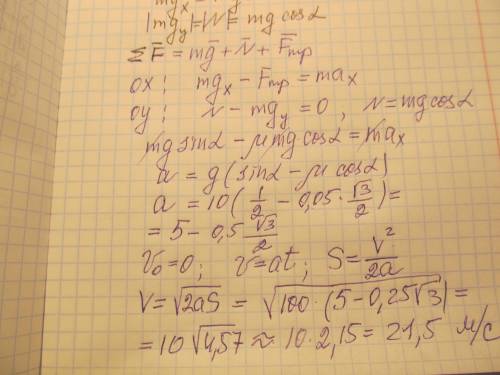 mgx
|mgy|=|N|= mg cosα
ΣF̄ = mḡ + N̄ + F̄тр
ox: mgx - Fтр = max
oy: N - mgy = 0, N = mg cosα
mg sinα - μmg cosα = max
a = g(sinα - μ cosα)
a = 10(1/2 - 0,05·√3/2) =
= 5 - 0,5 √3/2
V₀ = 0; v = at; S = V²/2a
V = √2aS = √100·(5 - 0,25√3) =
= 10√4,57 ≈ 10·2,15 = 21,5 м/с